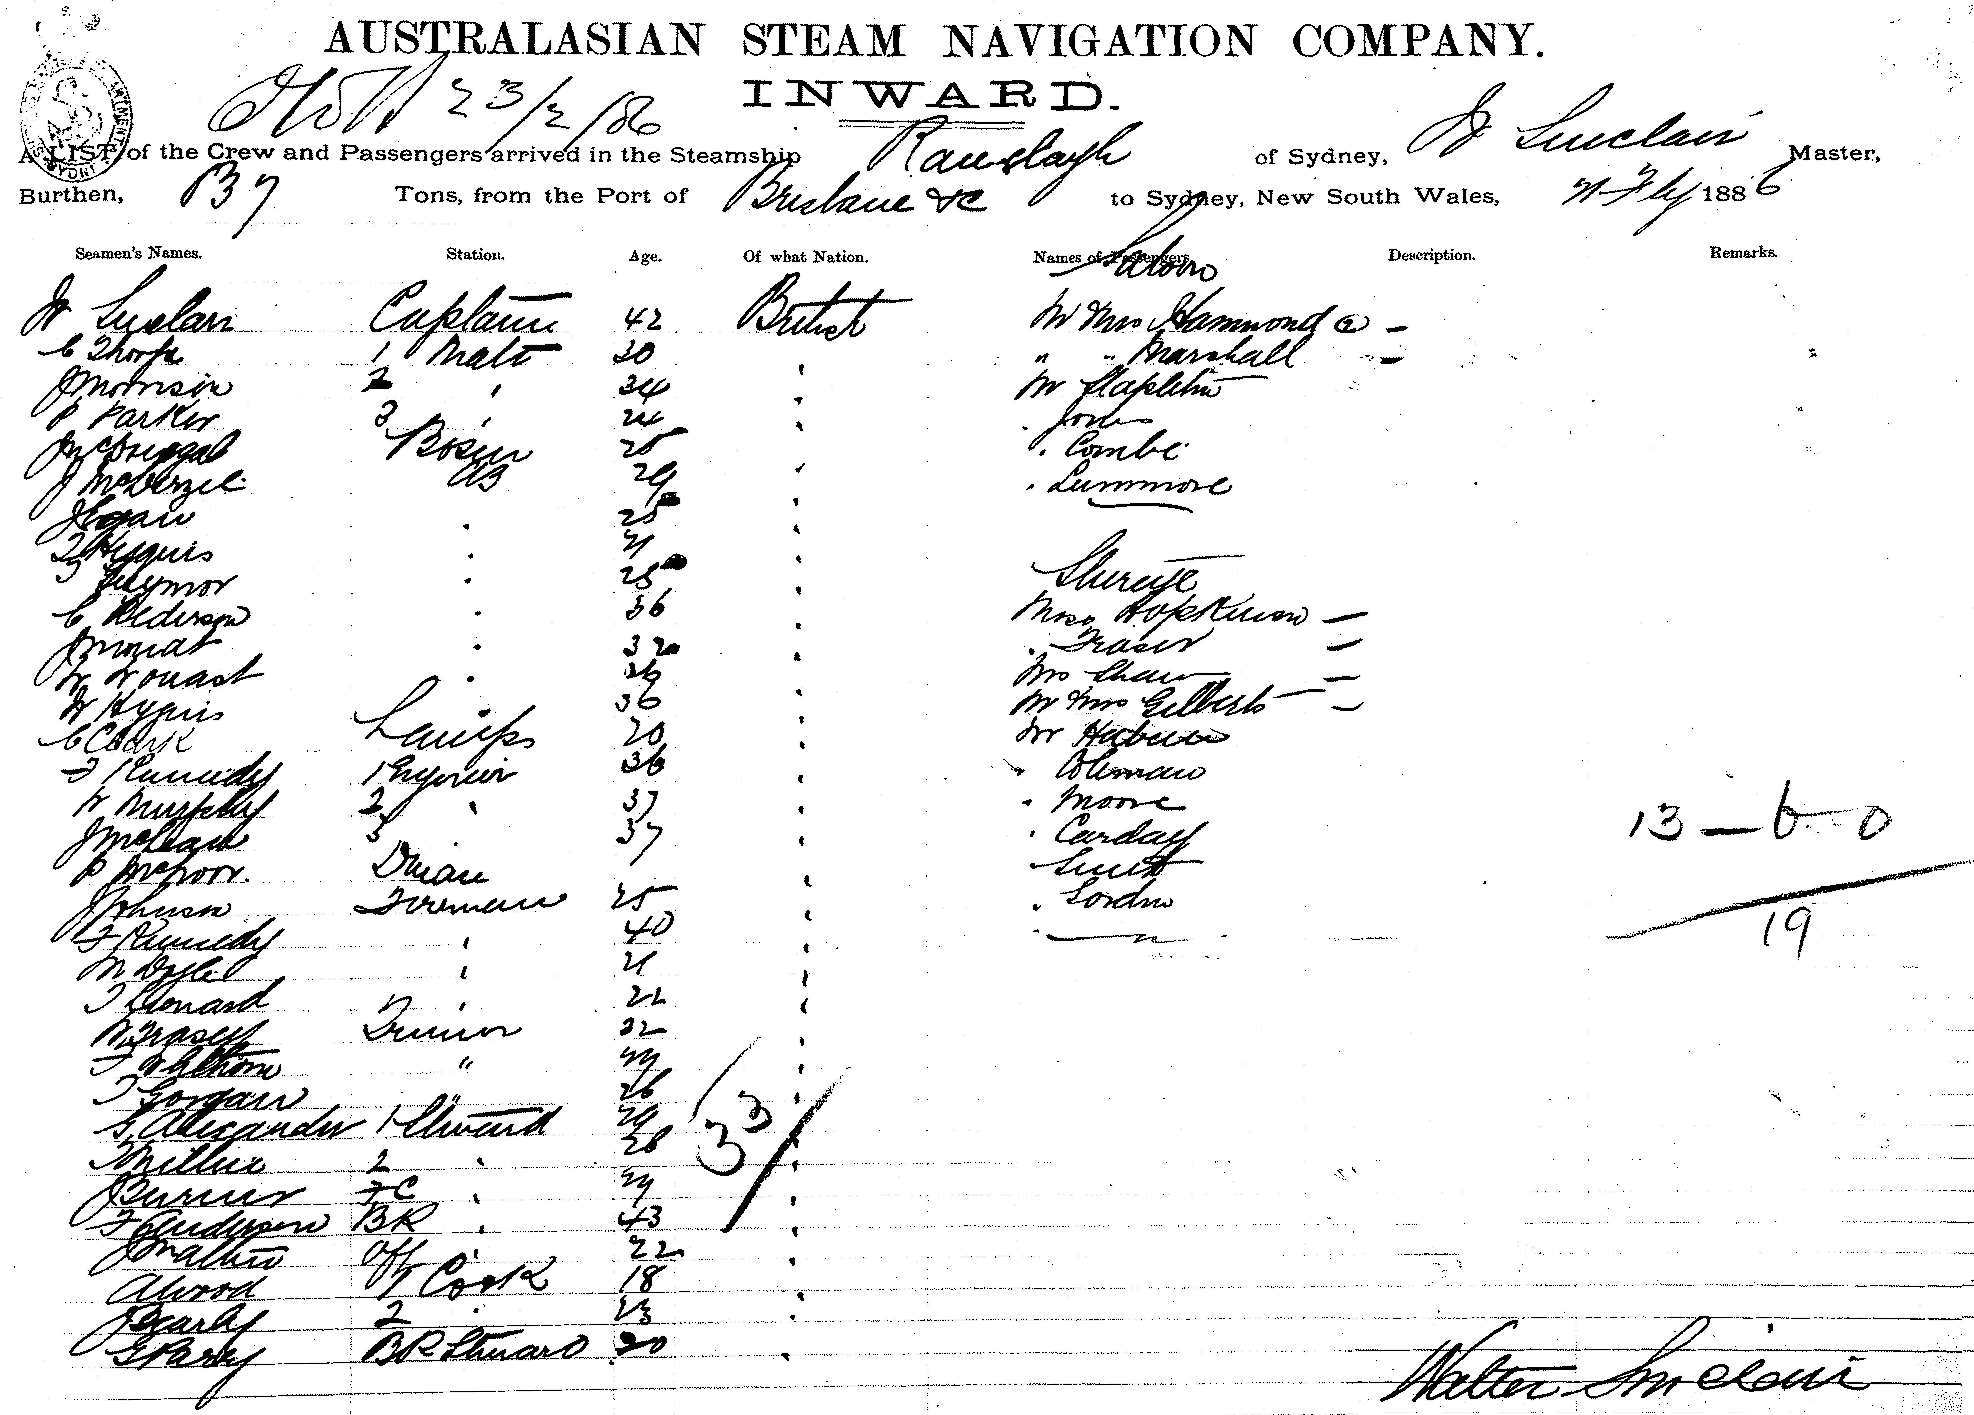 AUSTRALASIAN STEAM NAVIGATION COMPANY.
INWARD.
23/2/86
A LIST of the Crew and Passengers arrived in the Steamship Ranelagh of Sydney, W Sinclair Master,
Burthen, Tons, from the Port of Brisbane &c to Sydney, New South Wales, 1886
Seamen's Names. Station. Age. Of what Nation. Names of Passengers Description. Remarks.
Saloon
W Sinclair Captain 42 British Mr Mrs Hammond
C Thorpe 1 Mate 30 " " Marshall
J Morrison 2 " 34 " Mr Stapleton
P Parker 3 " 24 " Jones
J McDougal Bosun 25 " Combe
J McKenzie AB 29 " Lummore
J Egan " 25 "
Higgins " 21 "
Seymor " 25 " Steerage
C Pederson " 36 " Miss Hopkinson
J Mouat " 32 " Fraser
W " " Mrs Shaw
W Higgins 36 " Mr Mrs Gilberts
C Clark Lamps 20 " Mr
F Kennedy 1 Engineer 36 " Coleman
W Murphy 2 " 37 " Moore
J McLean 3 37 " Carday
P Smith
Johnson Fireman 25 " Gordon
F Kennedy " 40 "
M Doyle " 21 "
T Leonard " 22 "
W Fraser Trimmer 22
F "
T Gorgan 26 "
G Alexander 1 Steward 29
T Miller 2 " 28 "
J
F Henderson BR " 43 "
J Mathew 22 "
A Wood Cook 18 "
J Early 2 " 23 "
G Parry BR Steward 20 "
33
13 — 6 — 0
19
Walter Sinclair